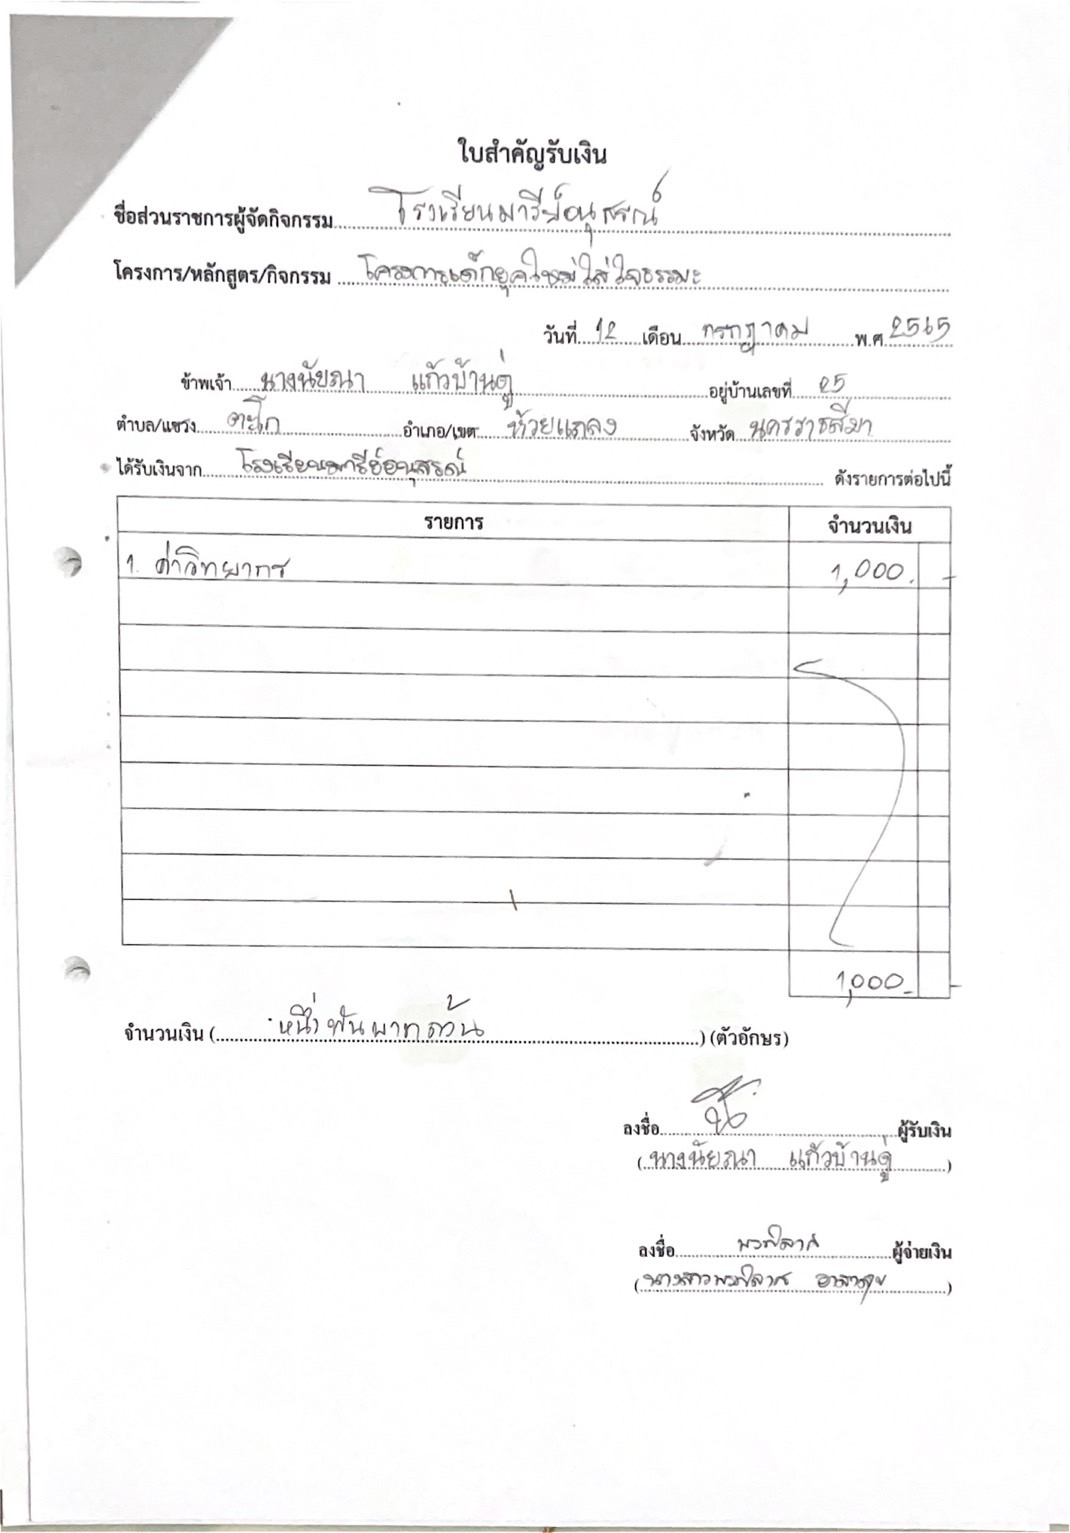 ใบสำคัญรับเงิน
ชื่อส่วนราชการผู้จัดกิจกรรม โรงเรียนมารีย์อนุสรณ์
โครงการ/หลักสูตร/กิจกรรม โครงการเด็กยุคใหม่ใส่ใจธรรมะ
วันที่ 12 เดือน กรกฎาคม พ.ศ 2565
ข้าพเจ้า นางนัยภนา แก้วบ้านดู่ อยู่บ้านเลขที่ 25
ตำบล/แขวง ตะโก อำเภอ/เขต ห้วยแถลง จังหวัด นครราชสีมา
ได้รับเงินจาก โรงเรียนมารีย์อนุสรณ์ ดังรายการต่อไปนี้
รายการ จำนวนเงิน
1. ค่าวิทยากร 1,000. -
1,000. -
จำนวนเงิน (หนึ่งพันบาทถ้วน) (ตัวอักษร)
ลงชื่อ ผู้รับเงิน
(นางนัยภนา แก้วบ้านดู่)
ลงชื่อ ผู้จ่ายเงิน
(นางสาว)